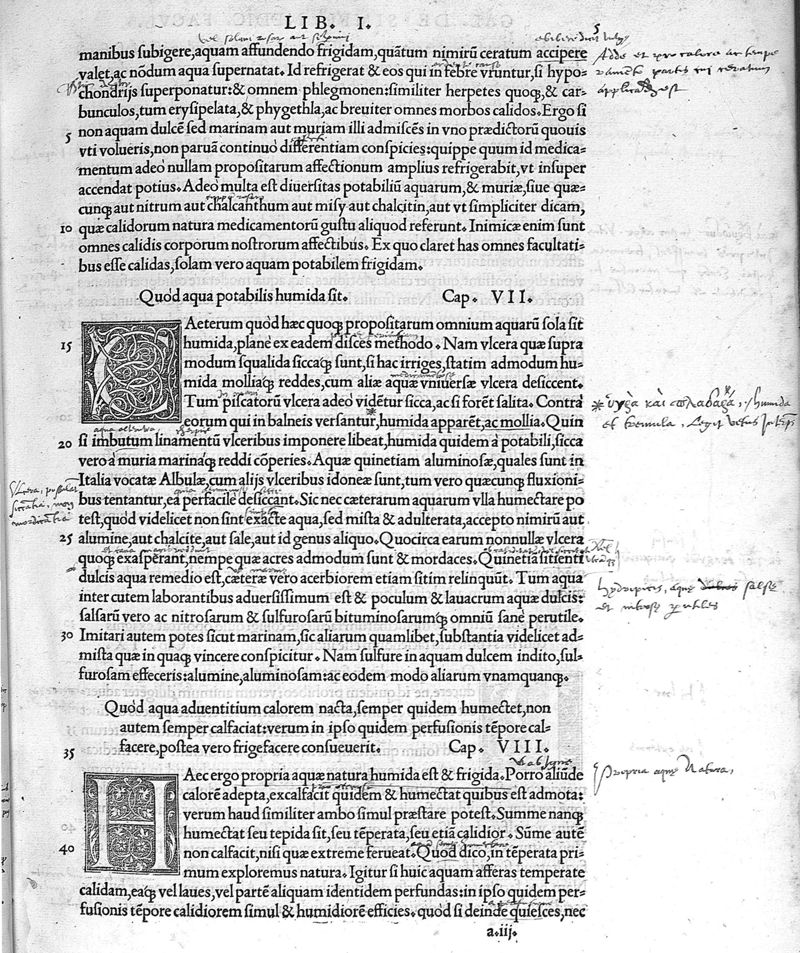 LIB. I.
5
manibus subigere, aquam affundendo frigidam, quãtum nimirũ ceratum accipere
valet, ac nõdum aqua supernatat. Id refrigerat & eos qui in febre vruntur, si hypo-
chondrijs superponatur: & omnem phlegmonen: similiter herpetes quoqꝫ, & car-
bunculos, tum erysipelata, & phygethla, ac breuiter omnes morbos calidos. Ergo si
5 non aquam dulcẽ sed marinam aut muriam illi admiscẽs in vno prædictorũ quouis
vti volueris, non paruã continuò differentiam conspicies: quippe quum id medica-
mentum adeò nullam propositarum affectionum amplius refrigerabit, vt insuper
accendat potius. Adeò multa est diuersitas potabiliũ aquarum, & muriæ, siue quæ-
cunqꝫ aut nitrum aut chalcanthum aut misy aut chalcitin, aut vt simpliciter dicam,
10 quæ calidorum natura medicamentorũ gustu aliquod referunt. Inimicæ enim sunt
omnes calidis corporum nostrorum affectibus. Ex quo claret has omnes facultati-
bus esse calidas, solam vero aquam potabilem frigidam.
Quòd aqua potabilis humida sit. Cap. VII.
CAeterum quòd hæc quoqꝫ propositarum omnium aquarũ sola sit
15 humida, planè ex eadem disces methodo. Nam vlcera quæ supra
modum squalida siccaqꝫ sunt, si hac irriges, statim admodum hu-
mida molliaqꝫ reddes, cum aliæ aquæ vniuersæ vlcera desiccent.
Tum piscatorũ vlcera adeò vidẽtur sicca, ac si forẽt salita. Contrà
eorum qui in balneis versantur, humida apparẽt, ac mollia. Quin
20 si imbutum linamentũ vlceribus imponere libeat, humida quidem à potabili, sicca
vero à muria marinaqꝫ reddi cõperies. Aquæ quinetiam aluminosæ, quales sunt in
Italia vocatæ Albulæ, cum alijs vlceribus idoneæ sunt, tum vero quæcunqꝫ fluxioni-
bus tentantur, ea perfacilè desiccant. Sic nec cæterarum aquarum vlla humectare po
test, quòd videlicet non sint exacte aqua, sed mista & adulterata, accepto nimirũ aut
25 alumine, aut chalcite, aut sale, aut id genus aliquo. Quocirca earum nonnullæ vlcera
quoqꝫ exasperant, nempe quæ acres admodum sunt & mordaces. Quinetiã sitienti
dulcis aqua remedio est, cæteræ vero acerbiorem etiam sitim relinquũt. Tum aqua
inter cutem laborantibus aduersissimum est & poculum & lauacrum aquæ dulcis:
salsarũ vero ac nitrosarum & sulfurosarũ bituminosarumqꝫ omniũ sanè perutile.
30 Imitari autem potes sicut marinam, sic aliarum quamlibet, substantia videlicet ad-
mista quæ in quaqꝫ vincere conspicitur. Nam sulfure in aquam dulcem indito, sul-
furosam effeceris: alumine, aluminosam: ac eodem modo aliarum vnamquanqꝫ.
Quòd aqua aduentitium calorem nacta, semper quidem humectet, non
autem semper calfaciat: verum in ipso quidem perfusionis tẽpore cal-
35 facere, postea vero frigefacere consueuerit. Cap. VIII.
HAec ergo propria aquæ natura humida est & frigida. Porrò aliũde
calorẽ adepta, excalfacit quidem & humectat quibus est admota:
verum haud similiter ambo simul præstare potest. Summe nanqꝫ
humectat seu tepida sit, seu tẽperata, seu etiã calidior. Sũme autẽ
40 non calfacit, nisi quæ extreme ferueat. Quòd dico, in tẽperata pri-
mum exploremus natura. Igitur si huic aquam afferas temperate
calidam, eaqꝫ vel laues, vel partẽ aliquam identidem perfundas: in ipso quidem per-
fusionis tẽpore calidiorem simul & humidiorẽ efficies. quòd si deinde quiesces, nec
a.iij.
Propria aquę Natura,